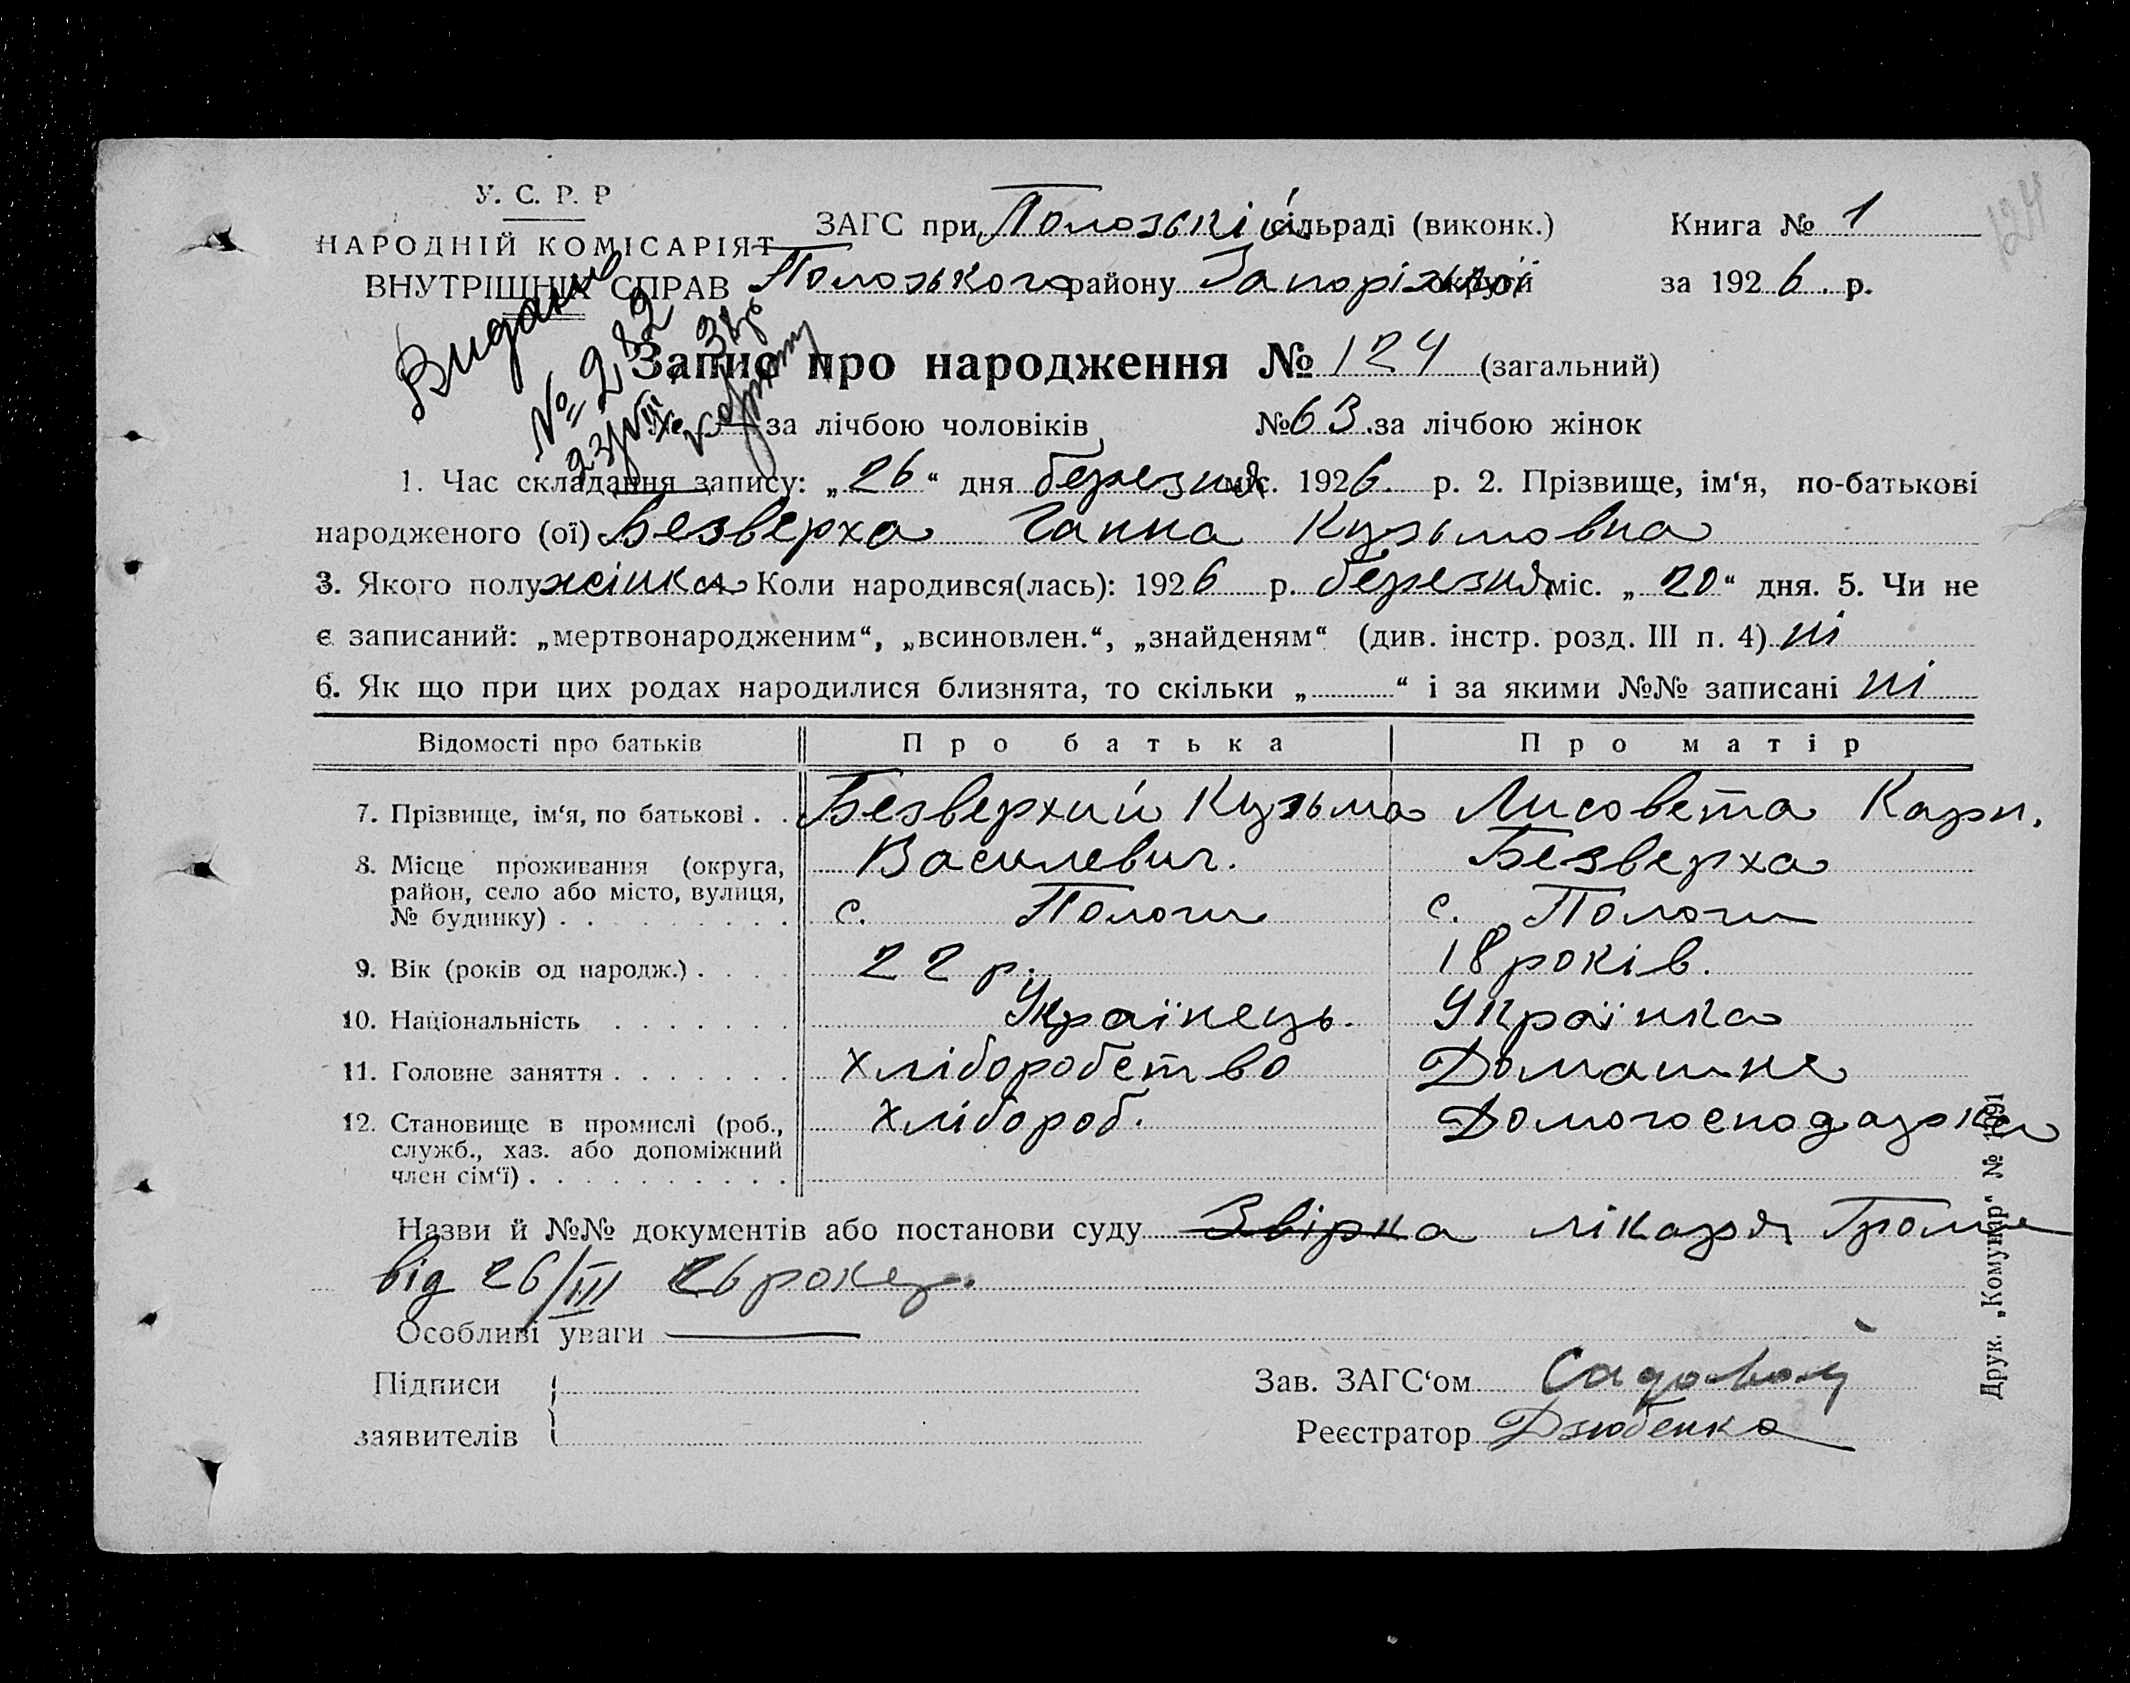 У. С. Р. Р
НАРОДНІЙ КОМІСАРІЯТ
ВНУТРІШНІХ СПРАВ
ЗАГС при Полозькій сільраді (виконк.)
Полозького району Запорізької округи
Книга № 1
за 1926 р.
124
Видано
№ 282
23/VIII
Запис про народження № 124 (загальний)
№ — за лічбою чоловіків, № 63 за лічбою жінок
1. Час складання запису: „26“ дня березня міс. 1926 р. 2. Прізвище, ім‘я, по-батькові
народженого (ої) Безверха Ганна Кузьмовна
3. Якого полу жінка Коли народився(лась): 1926 р. березня міс. „20“ дня. 5. Чи не
є записаний: „мертвонародженим“, „всиновлен.“, „знайденям“ (див. інстр. розд. III п. 4) ні
6. Як що при цих родах народилися близнята, то скільки „..........“ і за якими №№ записані ні
Відомості про батьків Про батька Про матір
7. Прізвище, ім‘я, по батькові . . Безверхий Кузьма Василевич. Лисовета Карп. Безверха
8. Місце проживання (округа,
район, село або місто, вулиця,
№ будинку) . . . . . . . . . с. Пологи с. Пологи
9. Вік (років од народж.) . . . . 22 р. 18 років.
10. Національність . . . . . . . Українець. Українка
11. Головне заняття . . . . . . . Хліборобство Домашнє
12. Становище в промислі (роб., Хлібороб. Домогосподарка
служб., хаз. або допоміжний
член сім‘ї) . . . . . . . . . .
Назви й №№ документів або постанови суду лікаря
від 26/III 26 року.
Особливі уваги —
Підписи
заявителів
Зав. ЗАГС‘ом
Реєстратор Дзюбенко
Друк. „Комунар“ № 1091